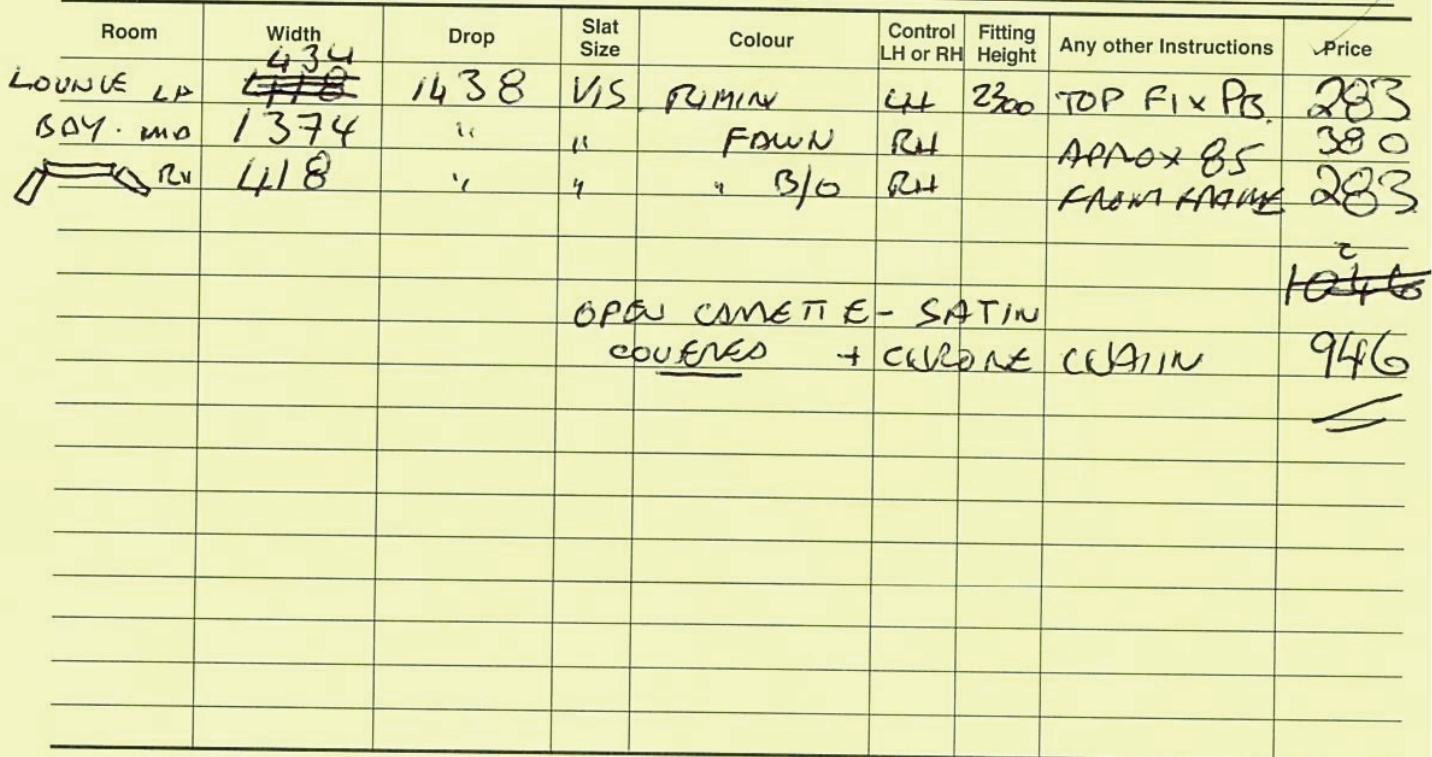 Room Width Drop Slat Size Colour Control LH or RH Fitting Height Any other Instructions Price
434
LOUNGE LH 418 1438 VIS RIMINI LH 2300 TOP FIX PB. 283
BAY. MID 1374 " " FAWN RH APROX 85 380
RH 418 " " " B/O RH FROM FRAME 283
1046
OPEN CASSETTE - SATIN
COVERED + CHROME CHAIN 946